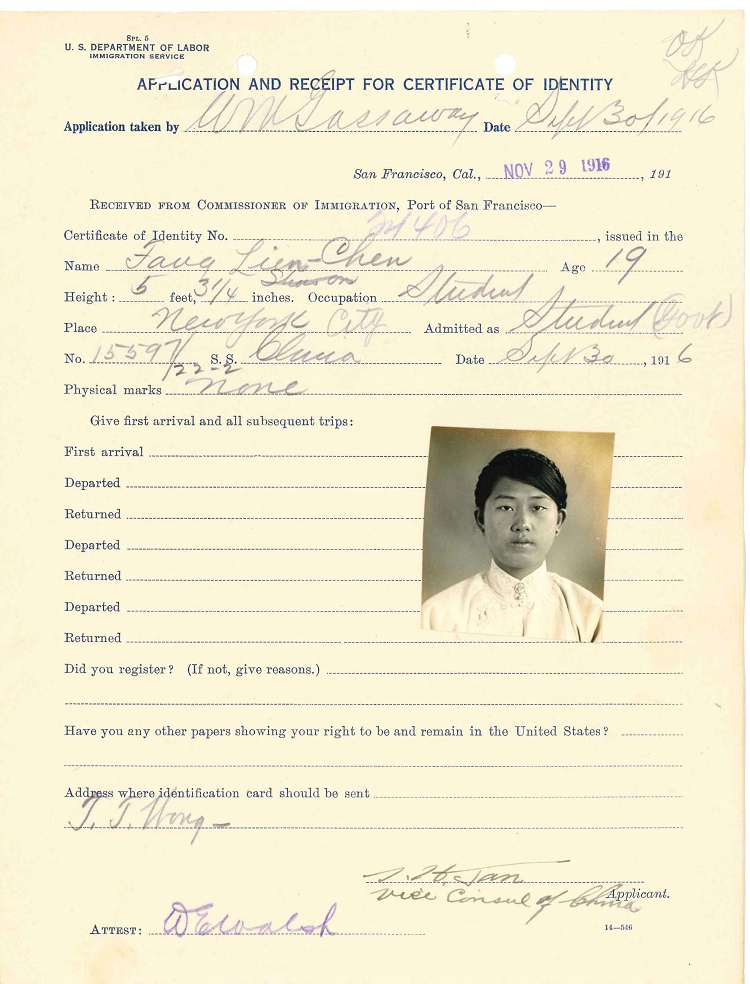 SPL. 5
U. S. DEPARTMENT OF LABOR
IMMIGRATION SERVICE
OK
APPLICATION AND RECEIPT FOR CERTIFICATE OF IDENTITY
Application taken by WM Gassaway Date Sept 30/1916
San Francisco, Cal., NOV 29 1916, 191
RECEIVED FROM COMMISSIONER OF IMMIGRATION, Port of San Francisco—
Certificate of Identity No. 24406, issued in the
Name Fang Lien-Chen Age 19
Height: 5 feet, 3 1/4 inches. Occupation Student
Place New York City Admitted as Student (Govt)
No. 15597/22-2 S.S. China Date Sept 30, 1916
Physical marks none
Give first arrival and all subsequent trips:
First arrival
Departed
Returned
Departed
Returned
Departed
Returned
Did you register? (If not, give reasons.)
Have you any other papers showing your right to be and remain in the United States?
Address where identification card should be sent
T. T. Wong—
H. Tan
Vice Consul of China Applicant.
ATTEST: DEWalsh
14—546